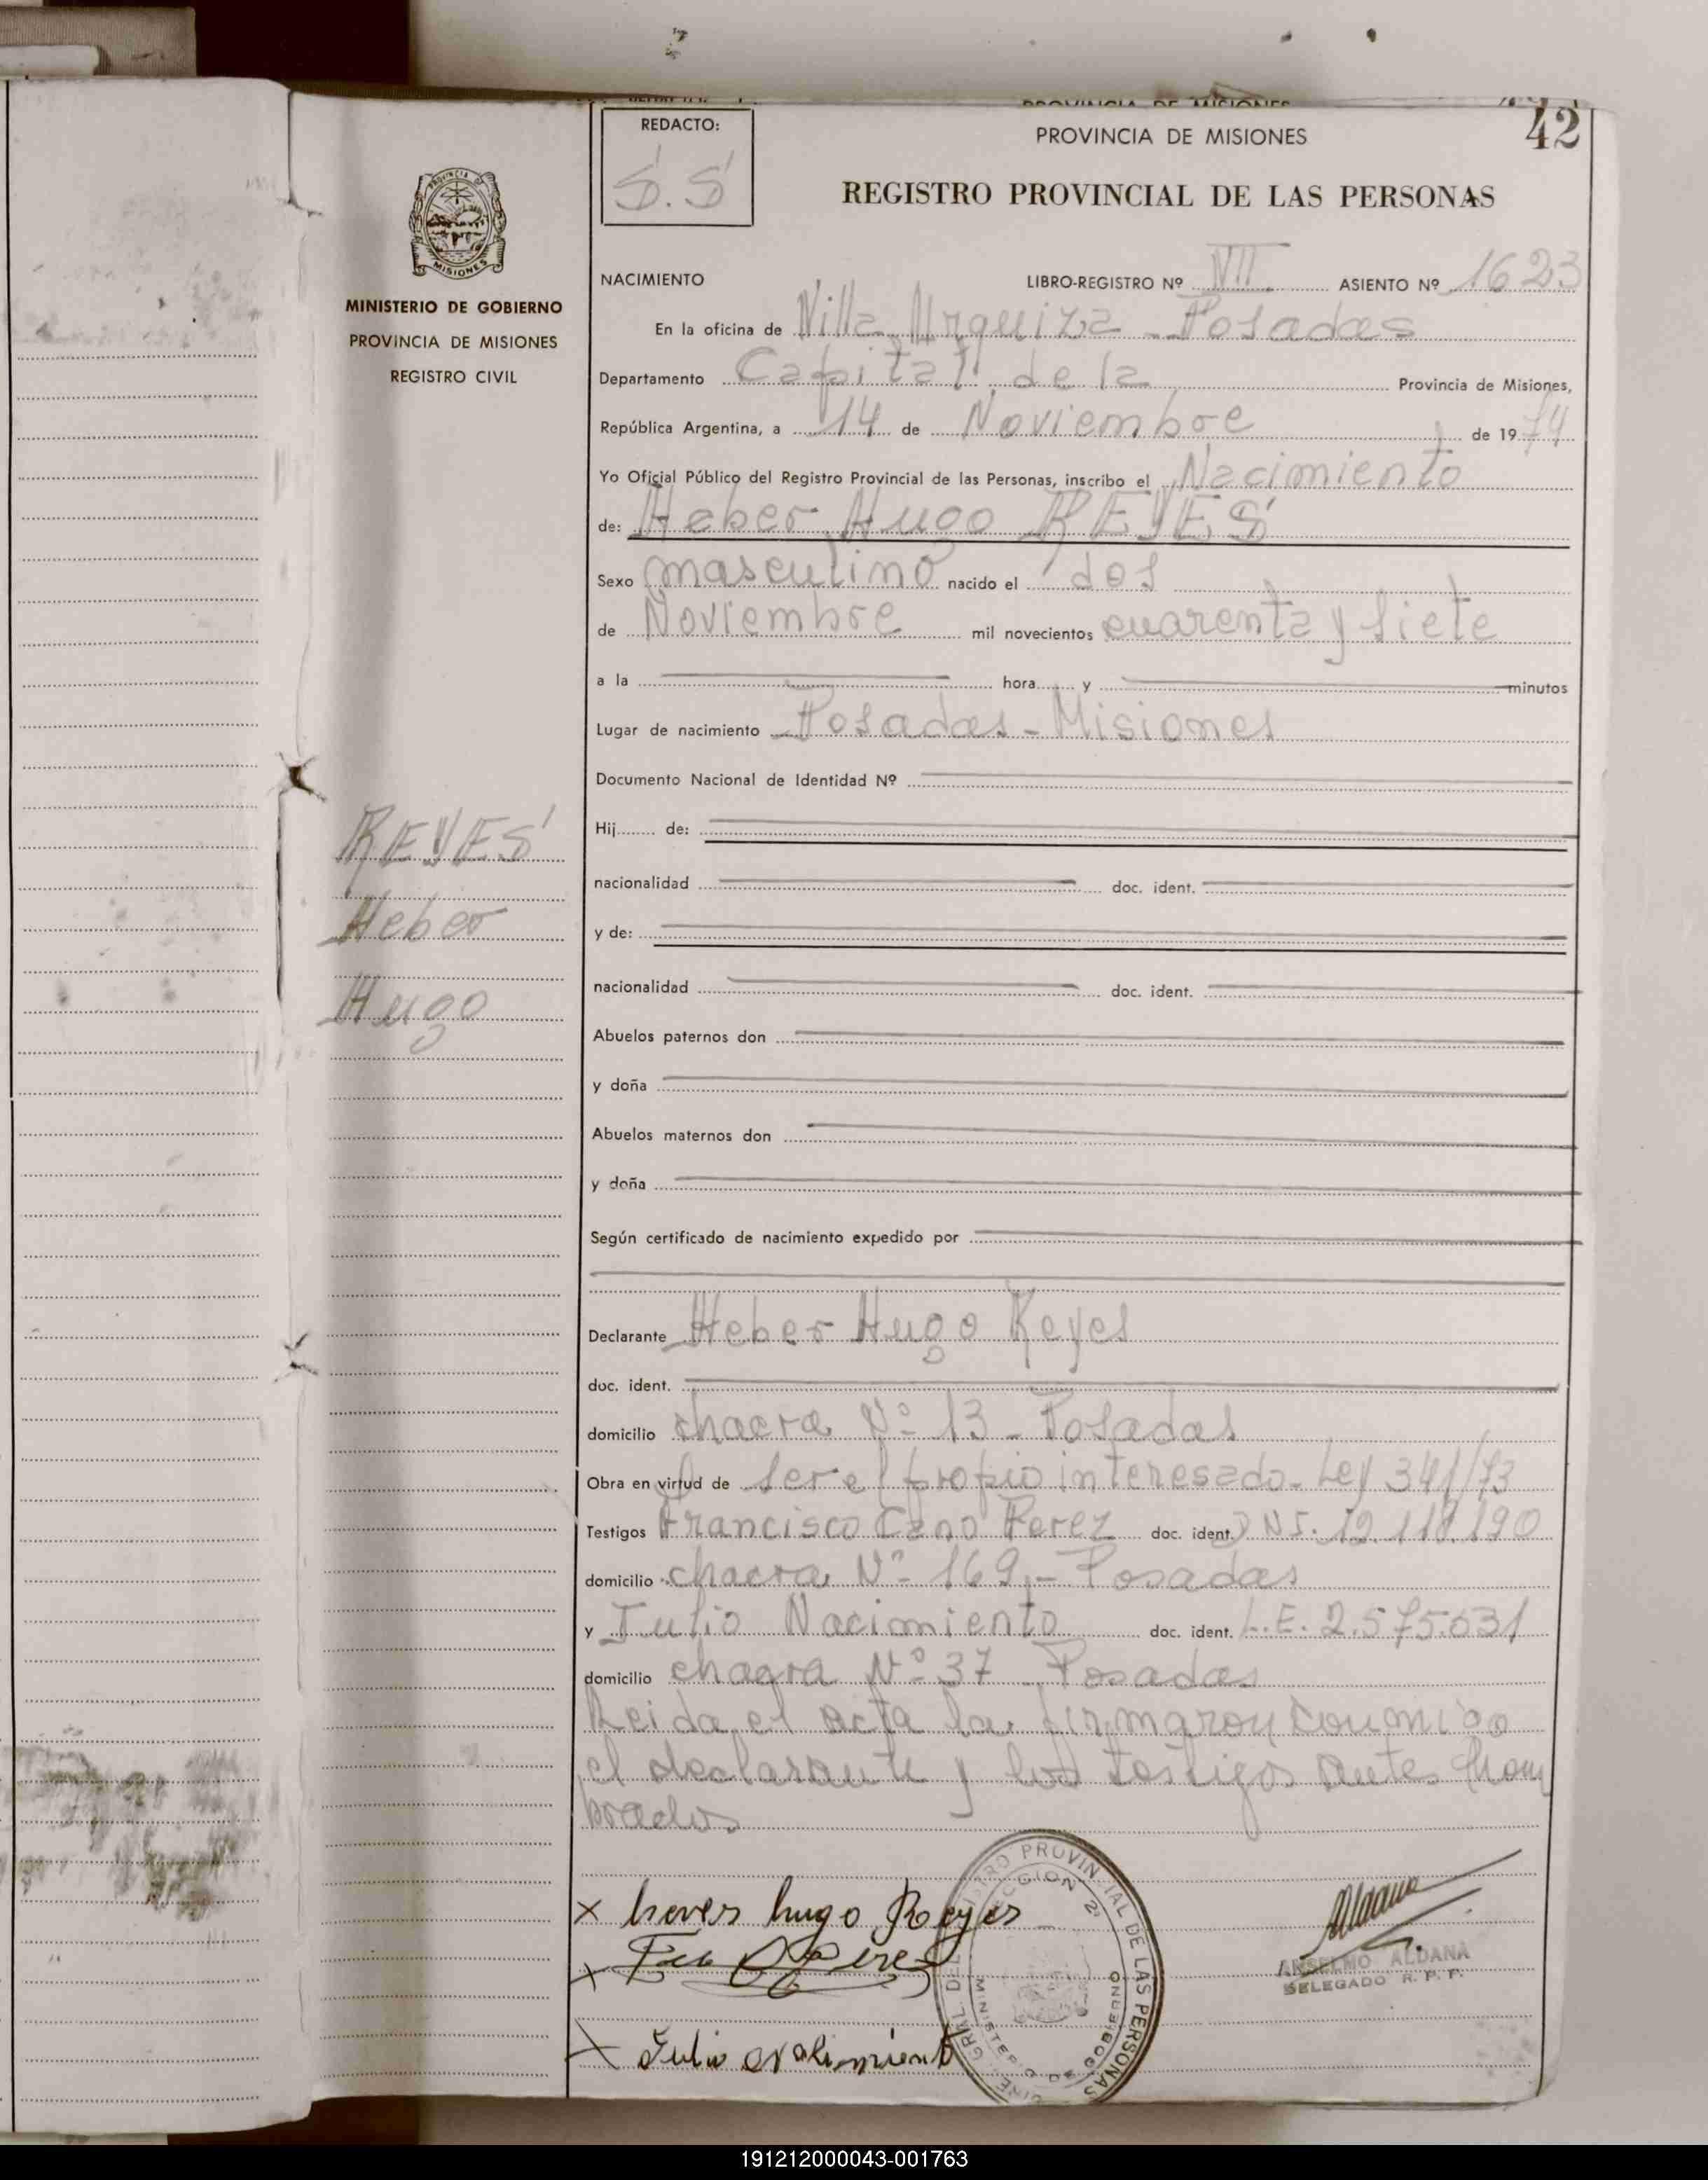 PROVINCIA DE MISIONES
42
REDACTO:
S.S
PROVINCIA DE MISIONES
REGISTRO PROVINCIAL DE LAS PERSONAS
PROVINCIA DE
MISIONES
MINISTERIO DE GOBIERNO
PROVINCIA DE MISIONES
REGISTRO CIVIL
NACIMIENTO LIBRO-REGISTRO Nº VII ASIENTO Nº 1623
En la oficina de Villa Urquiza - Posadas
Departamento Capital de la Provincia de Misiones,
República Argentina, a 14 de Noviembre de 1974
Yo Oficial Público del Registro Provincial de las Personas, inscribo el Nacimiento
de: Heber Hugo REYES
Sexo masculino nacido el dos
de Noviembre mil novecientos cuarenta y siete
a la hora y minutos
Lugar de nacimiento Posadas - Misiones
Documento Nacional de Identidad Nº
REYES
Heber
Hugo
Hij de:
nacionalidad doc. ident.
y de:
nacionalidad doc. ident.
Abuelos paternos don
y doña
Abuelos maternos don
y doña
Según certificado de nacimiento expedido por
Declarante Heber Hugo Reyes
doc. ident.
domicilio chacra Nº 13 - Posadas
Obra en virtud de ser el propio interesado - Ley 341/73
Testigos Francisco Cano Perez doc. ident. DNI.
domicilio chacra Nº 169 - Posadas
y Julio Nacimiento doc. ident. L.E. 2.575.531
domicilio chagra Nº 37 Posadas
Leida el acta la firmaron conmigo
el declarante y los testigos antes nom
brados
x hever hugo Reyes
x Fco Perez
x Julio
ANSELMO ALDANA
DELEGADO R. P. P.
PROVINCIAL DE LAS PERSONAS
MINISTERIO DE GOBIERNO
191212000043-001763